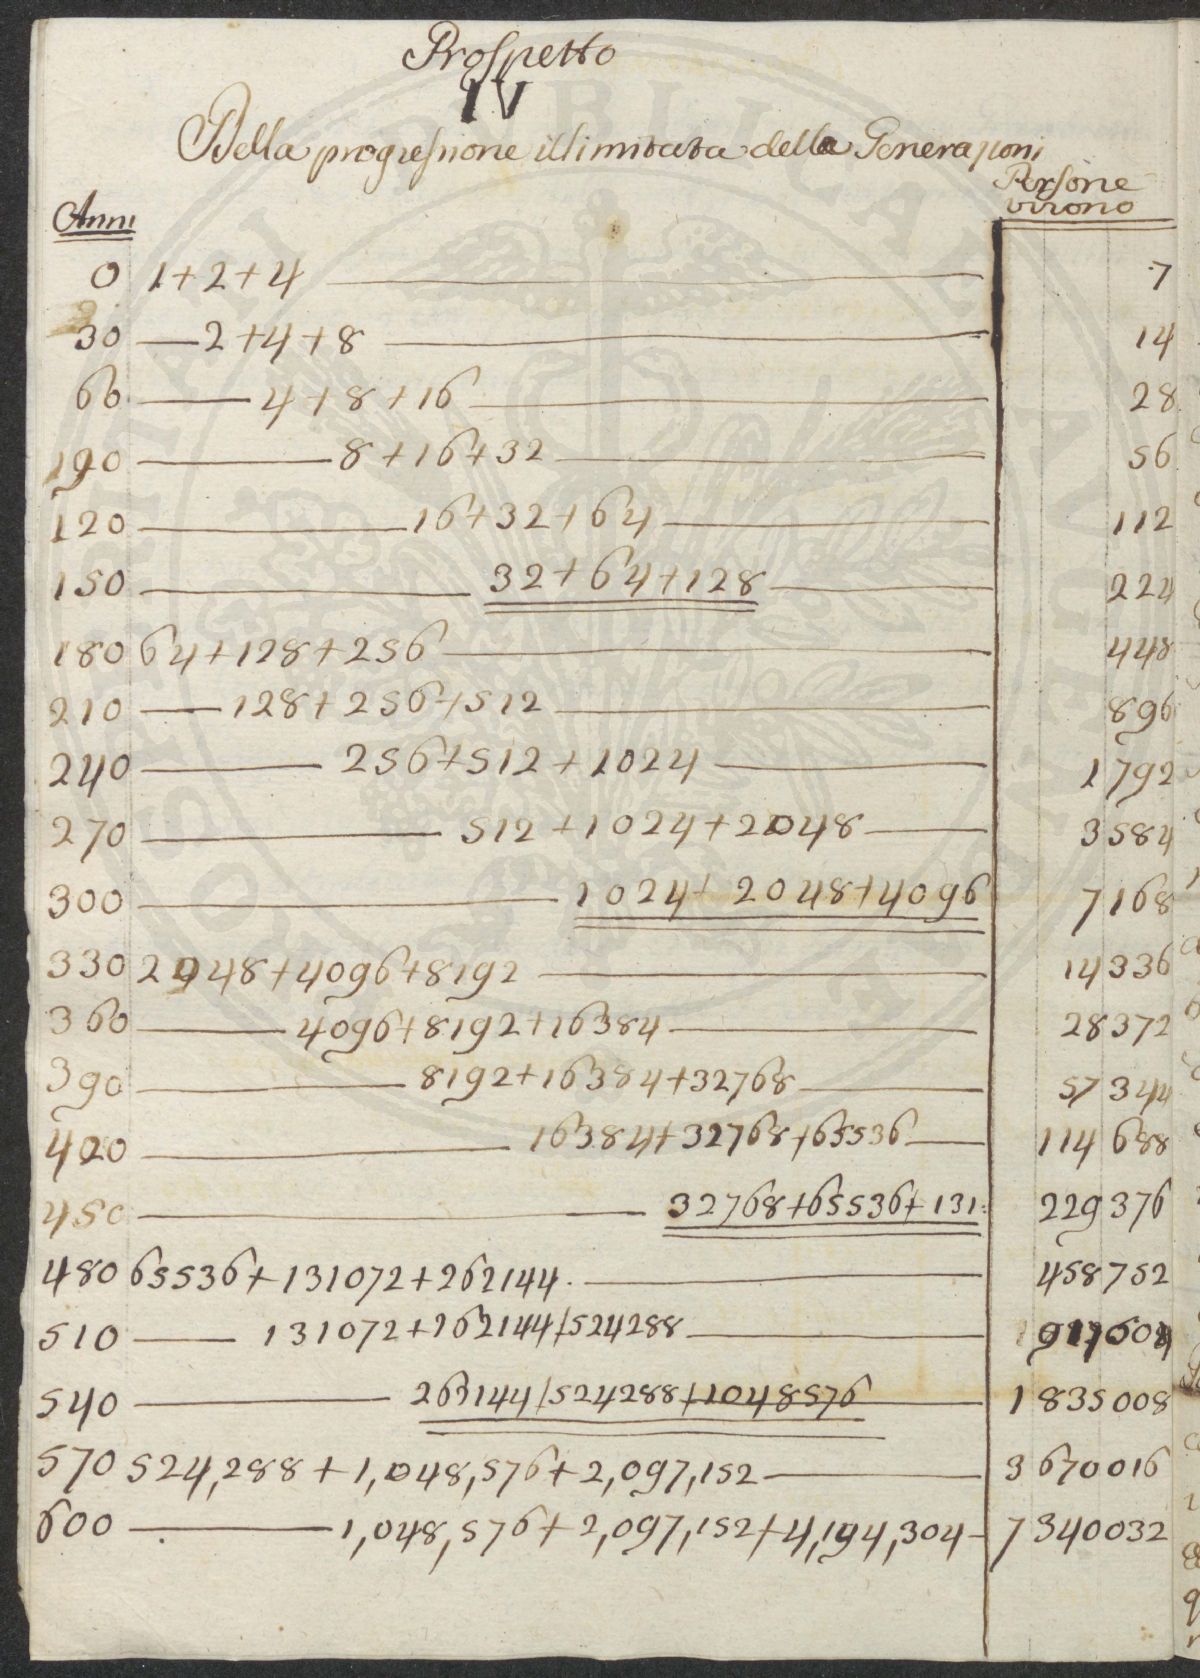 Prospetto
IV
Della progressione illimitata delle Generazioni
Persone
vivono
Anni
0 1+2+4 7
30 2+4+8 14
60 4+8+16 28
190 8+16+32 56
120 16+32+64 112
150 32+64+128 224
180 64+128+256 448
210 128+256+512 896
240 256+512+1024 1792
270 512+1024+2048 3584
300 1024+2048+4096 7168
330 2048+4096+8192 14336
360 4096+8192+16384 28372
390 8192+16384+32768 57344
420 16384+32768+65536 114688
450 32768+65536+131: 229376
480 65536+131072+262144. 458752
510 131072+262144+524288
540 262144+524288+1048576 1835008
570 524,288+1,048,576+2,097,152 3670016
600 1,048,576+2,097,152+4,194,304 7340032